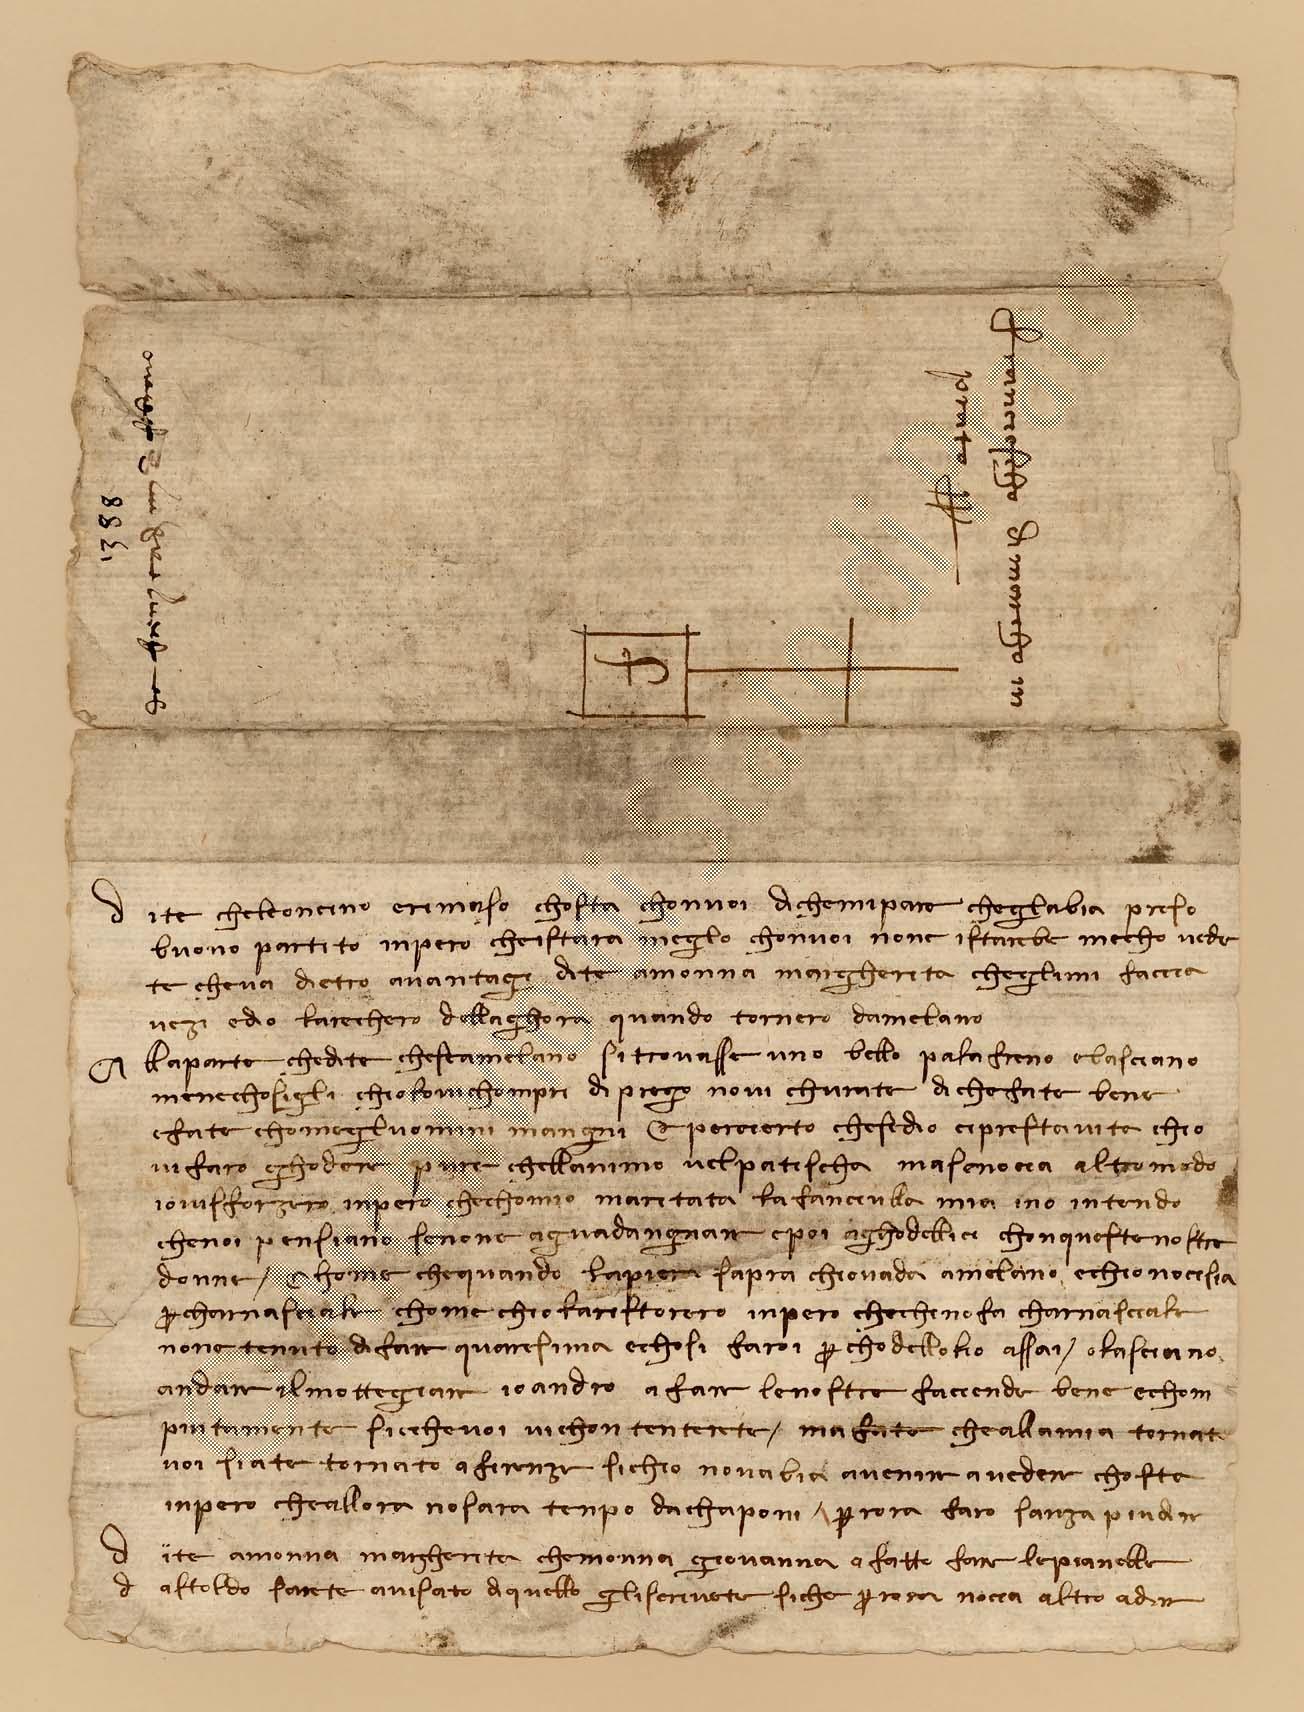 Francescho di marcho da
prato
1388
F
dite cheleoncino erimaso chosta chonvoi dichemipare cheglabia preso
buono partito inpero cheistara meglo chonvoi none istarebe mecho vede
te cheva dietro avantagi dite amonna margherita cheglimi faccia
vezi edio larechero dellaghora quando tornero damelano
Allaparte chedite cheseamelano sitrovasse uno bello palafreno olasciano
menechosigli chiolovichompri diprego novi churate dichefate bene
efate chomegluomini mangni e percierto chesedio ciprestavita chio
vifaro ghodere pure chellanimo velpatischa masenocia altromodo
iovisforzero inpero chechomio maritata lafanciulla mia ino intendo
chenoi pensiano senone aguadangnare epoi aghodellici chonquestenostre
donne / e home chequando lapiera sapra chiovada amelano echionocisia
percharnasciale chome chiolaristorero inpero chechinofa charnasciale
none tenuto difare quaresima echosi faroi perchodellolio assai / olasciano
andare ilmottegiare ioandro afare lenostre faccende bene echom
piutamente sicchevoi vichontenterete / mafate cheallamia tornata
voi siate tornato afirenze sichio novabia avenire avedere chosta
inpero cheallora nosara tenpo dachaponi / perrora faro sanza piudire
dite amonna margherita chemonna giovanna afatto fare lepianelle
dastoldo sarete avisato diquello gliscrivete siche perrora nocia altro adire